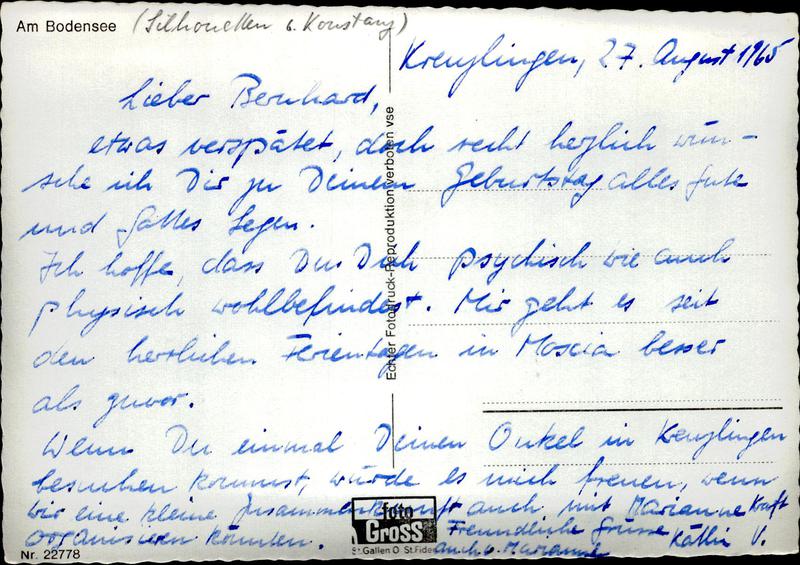 Am Bodensee (Silhouetten v. Konstanz)
Kreuzlingen, 27. August 1965
Lieber Bernhard,
etwas verspätet, doch recht herzlich wün-
sche ich Dir zu Deinem Geburtstag alles Gute
und Gottes Segen.
Ich hoffe, dass Du Dich psychisch wie auch
physisch wohlbefindest. Mir geht es seit
den herrlichen Ferientagen in Moscia besser
als zuvor.
Wenn Du einmal Deinen Onkel in Kreuzlingen
besuchen kommst, würde es mich freuen, wenn
wir eine kleine Zusammenkunft auch mit Marianne Kraft
organisieren könnten. Freundliche Grüsse Käthi V.
auch v. Marianne
Echter Fotodruck-Reproduktion verboten vse
foto
Gross
St. Gallen O St. Fiden
Nr. 22778